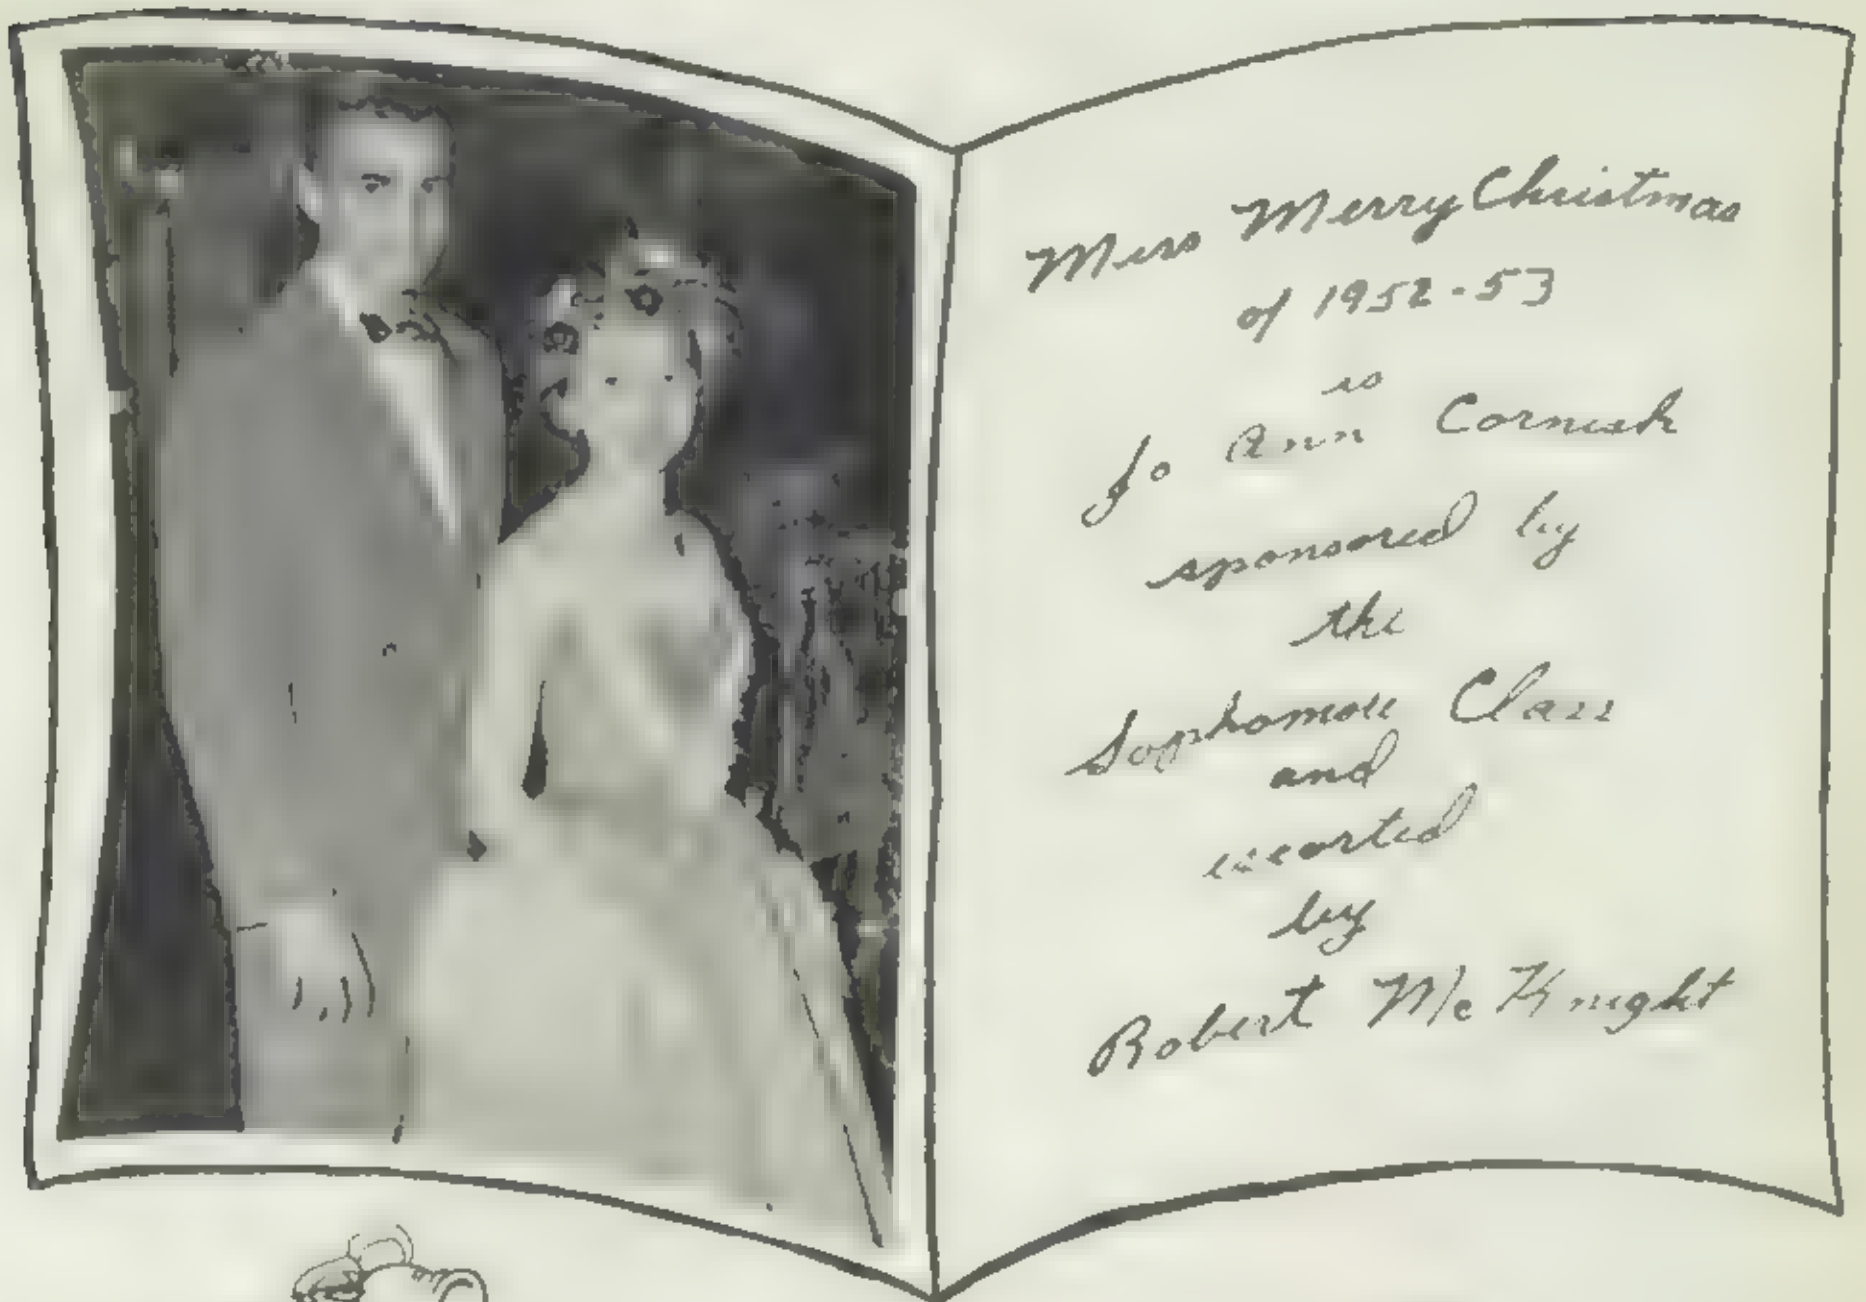 Miss Merry Christmas
of 1952-53
is
Jo Ann Cornish
sponsored by
the
Sophomore Class
and
escorted
by
Robert McKnight